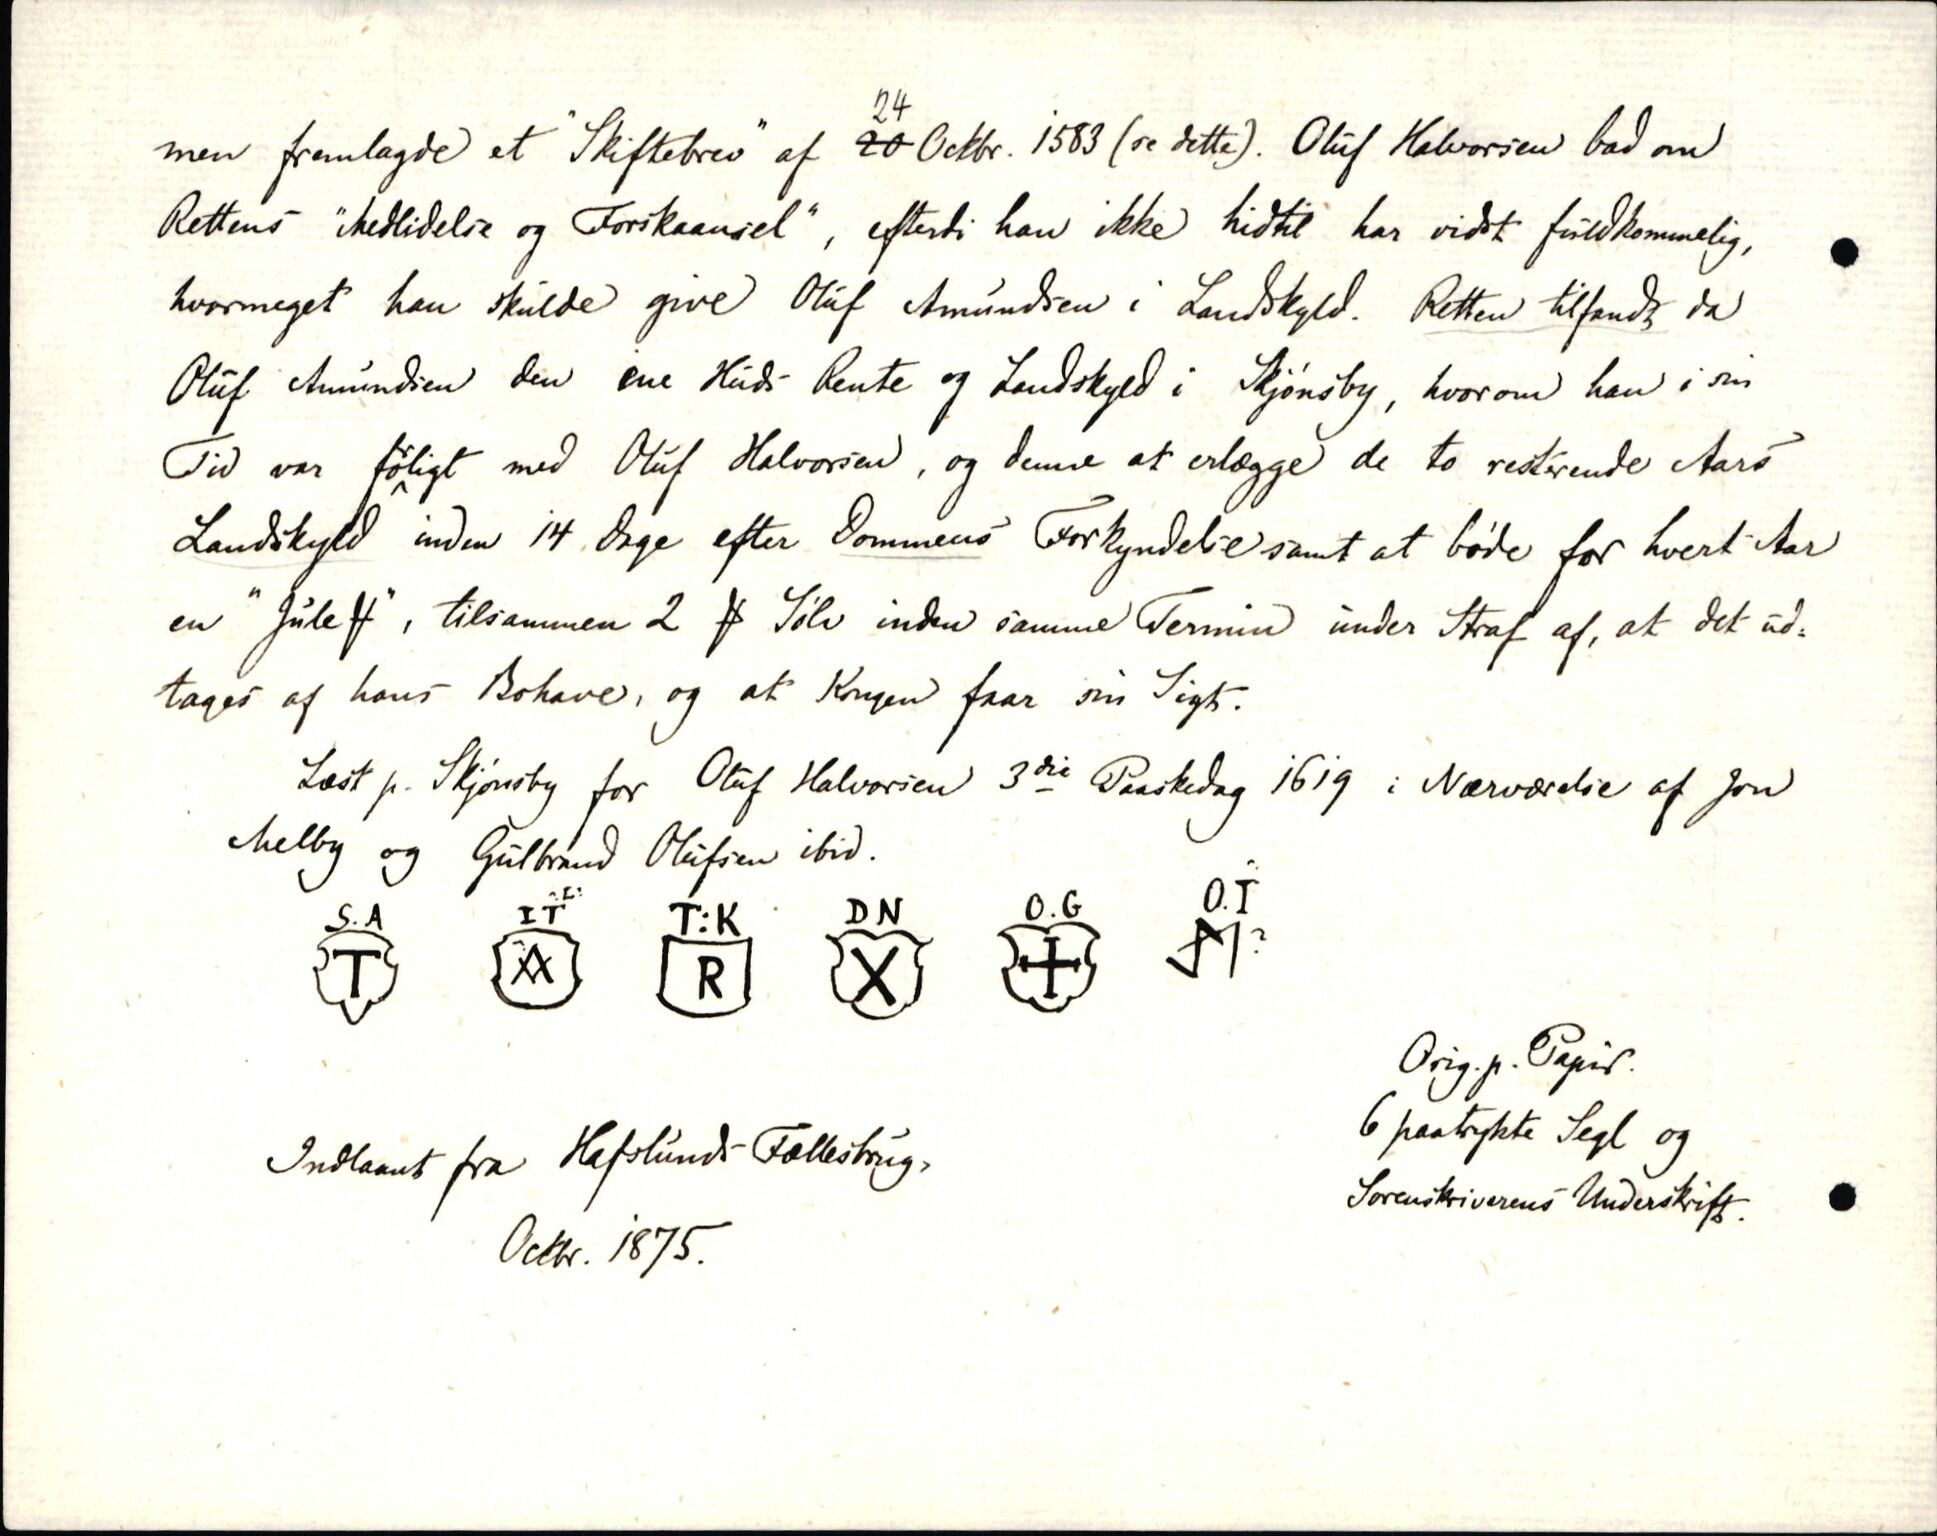 men fremlagde et "Skiftebrev" af 20 24 Octbr. 1583 (se dette). Oluf Halvorsen bad om
Rettens "Medlidelse og Forskaansel", efterdi han ikke hidtil har vidst fuldkommelig,
hvormeget han skulde give Oluf Amundsen i Landskyld. Retten tilfandt da
Oluf Amundsen den ene Huds Rente og Landskyld i Skjónsby, hvorom han i sin
Tid var föligt med Oluf Halvorsen, og denne at erlægge de to resterende Aars
Landskyld inden 14 Dage efter Dommens Forkyndelse samt at bóde for hvert Aar
en "Jule℔", tilsammen 2 ℔ Sólv inden samme Termin under Straf af, at det ud=
tages af hans Bohave, og at Kongen faar sin Sigt.
Læst p. Skjónsby for Oluf Halvorsen 3die Paaskedag 1619 i Nærværelse af Jon
Melby og Gulbrand Olufsen ibid.
S.A IT L: T:K DN O.G O.I
T R X ?
Orig. p. Papir.
6 paatrykte Segl og
Sorenskriverens Underskrift.
Indlaant fra Hafslunds Fællesbrug,
Octbr. 1875.